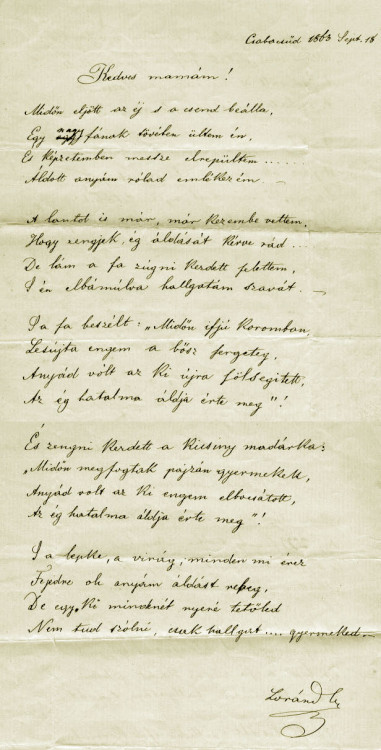 Csabacsüd 1863 Sept. 18
Kedves mamám!
Midőn eljött az éj s a csend beálla,
Egy nagy fának tövében ültem én,
És képzetemben messze elrepültem.....
Áldott anyám rólad emlékezém. –
A lantot is már, már kezembe vettem,
Hogy zengjek, ég áldását kérve rád...
De lám a fa zúgni kezdett felettem,
S én elbámúlva hallgatám szavát. –
S a fa beszélt: „Midőn ifjú koromban,
Lesújta engem a bősz fergeteg,
Anyád volt az ki újra fölsegített,
Az ég hatalma áldja érte meg"!
És zengni kezdett a kicsiny madárka:
„Midőn megfogtak pajzán gyermekek,
Anyád volt az ki engem elbocsátott,
Az ég hatalma áldja érte meg"!
S a lepke, a virág, minden mi érez
Fejedre oh anyám áldást rebeg,
De egy, ki mindenét nyeré tetőled
Nem tud szólni, csak hallgat.... gyermeked –
Loránd